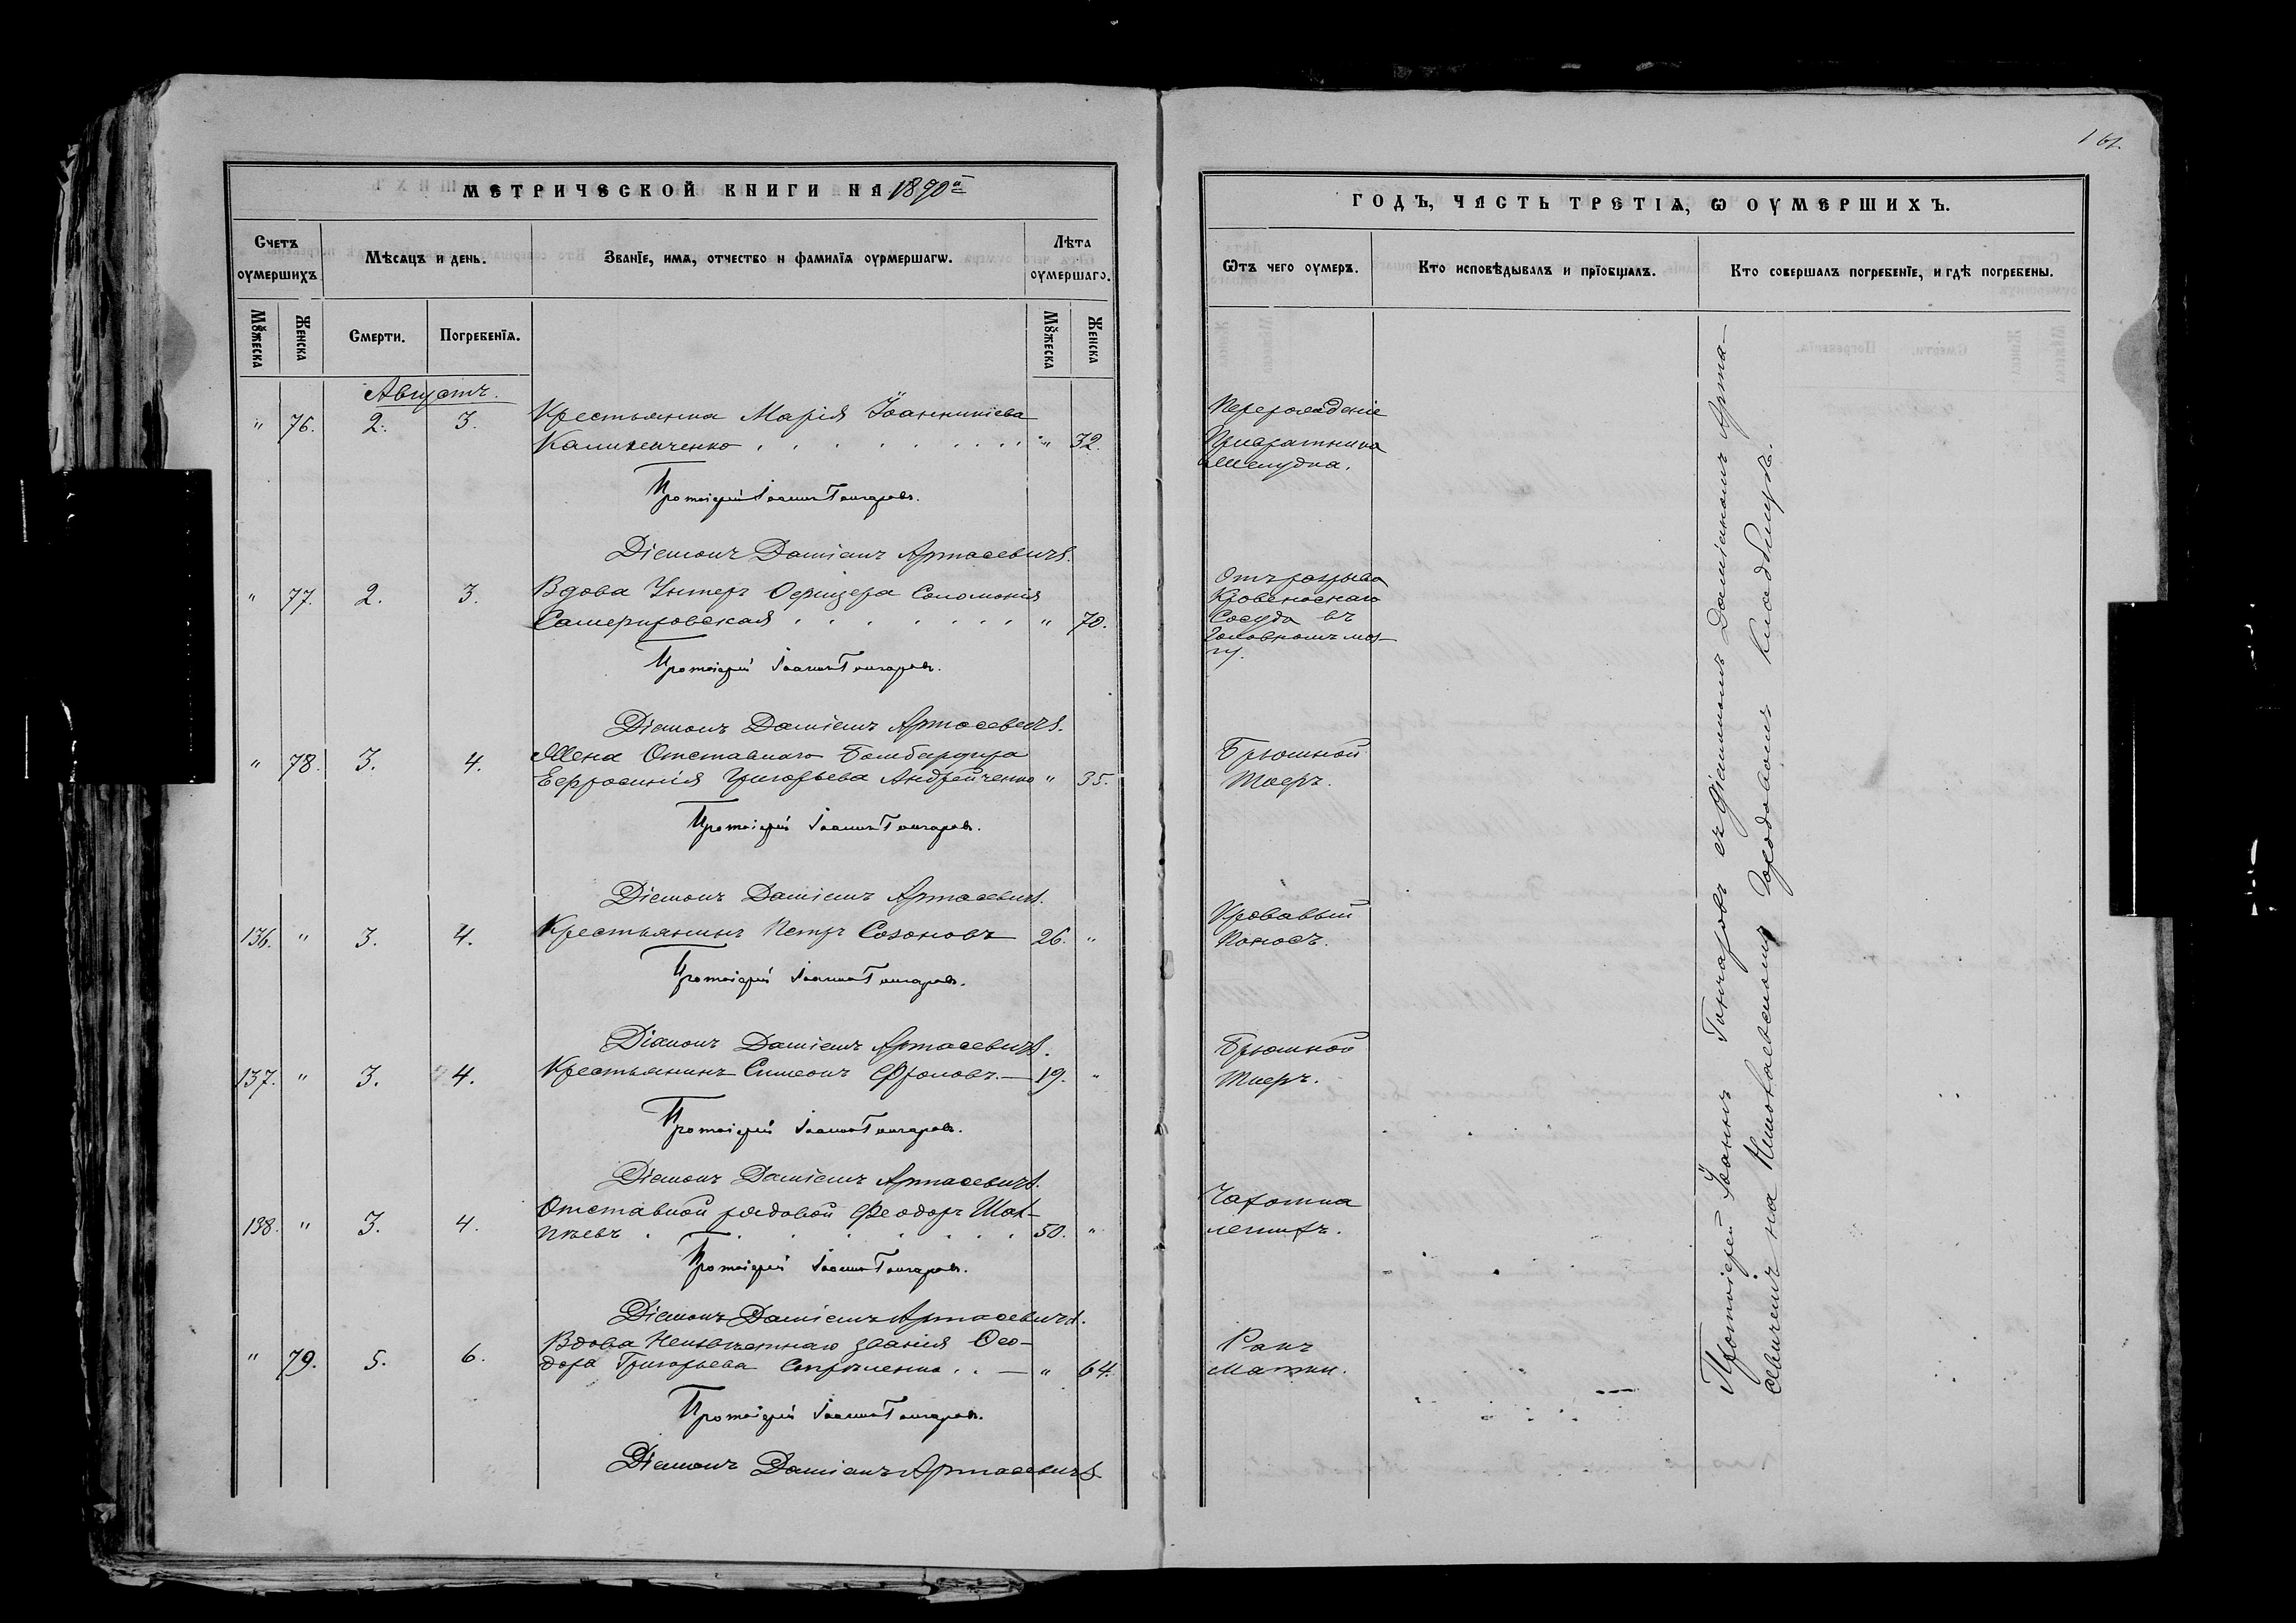 МЕТРИЧЕСКОЙ КНИГИ НА 1890й
Счетъ оумершихъ
Мѣсяцъ и день.
Званїе, имя, отчество и фамилїя оурмершагѡ.
Лѣта оумершаго.
Мꙋжеска
Женска
Смерти.
Погребенїя.
Мꙋжеска
Женска
Августъ.
" 76. 2. 3. Крестьянка Марія Іоанникіева
Калиниченко " 32.
Протоіерей Іоаннъ Гончаровъ.
Діаконъ Даміанъ Артасевичъ.
" 77. 2. 3. Вдова Унтеръ Офицера Соломонія
" 70.
Протоіерей Іоаннъ Гончаровъ.
Діаконъ Даміанъ Артасевичъ.
" 78. 3. 4. Жена Отставнаго Бомбардира
Евфросинія Григорьева Андрейченко " 35.
Протоіерей Іоаннъ Гончаровъ.
Діаконъ Даміанъ Артасевичъ.
136. " 3. 4. Крестьянинъ Петръ Созоновъ 26. "
Протоіерей Іоаннъ Гончаровъ.
Діаконъ Даміанъ Артасевичъ.
137. " 3. 4. Крестьянинъ Симеонъ Фроловъ. 19. "
Протоіерей Іоаннъ Гончаровъ.
Діаконъ Даміанъ Артасевичъ.
138. " 3. 4. Отставной рядовой Феодоръ
50. "
Протоіерей Іоаннъ Гончаровъ.
Діаконъ Даміанъ Артасевичъ.
" 79. 5. 6. Вдова Неизвѣстнаго званія Ѳео-
дора Григорьева " 64.
Протоіерей Іоаннъ Гончаровъ.
Діаконъ Даміанъ Артасевичъ
161.
ГОДЪ, ЧАСТЬ ТРЕТІЯ, Ѡ ОУМЕРШИХЪ.
Ѿтъ чего оумеръ.
Кто исповѣдывалъ и прїобщалъ.
Кто совершалъ погребенїе, и гдѣ погребены.
Перерожденіе
Привратника
Желудка.
Отъ разрыва
Кровеноснаго
Сосуда въ
Головномъ моз-
гу.
Брюшной
Тифъ.
Кровавый
Поносъ.
Брюшной
Тифъ.
Чахотка
легкихъ.
Ракъ
Матки.
Протоіерей Іоаннъ Гончаровъ съ діакономъ Даміаномъ Арта-
севичемъ на Николаевскомъ Городовомъ кладбищѣ.